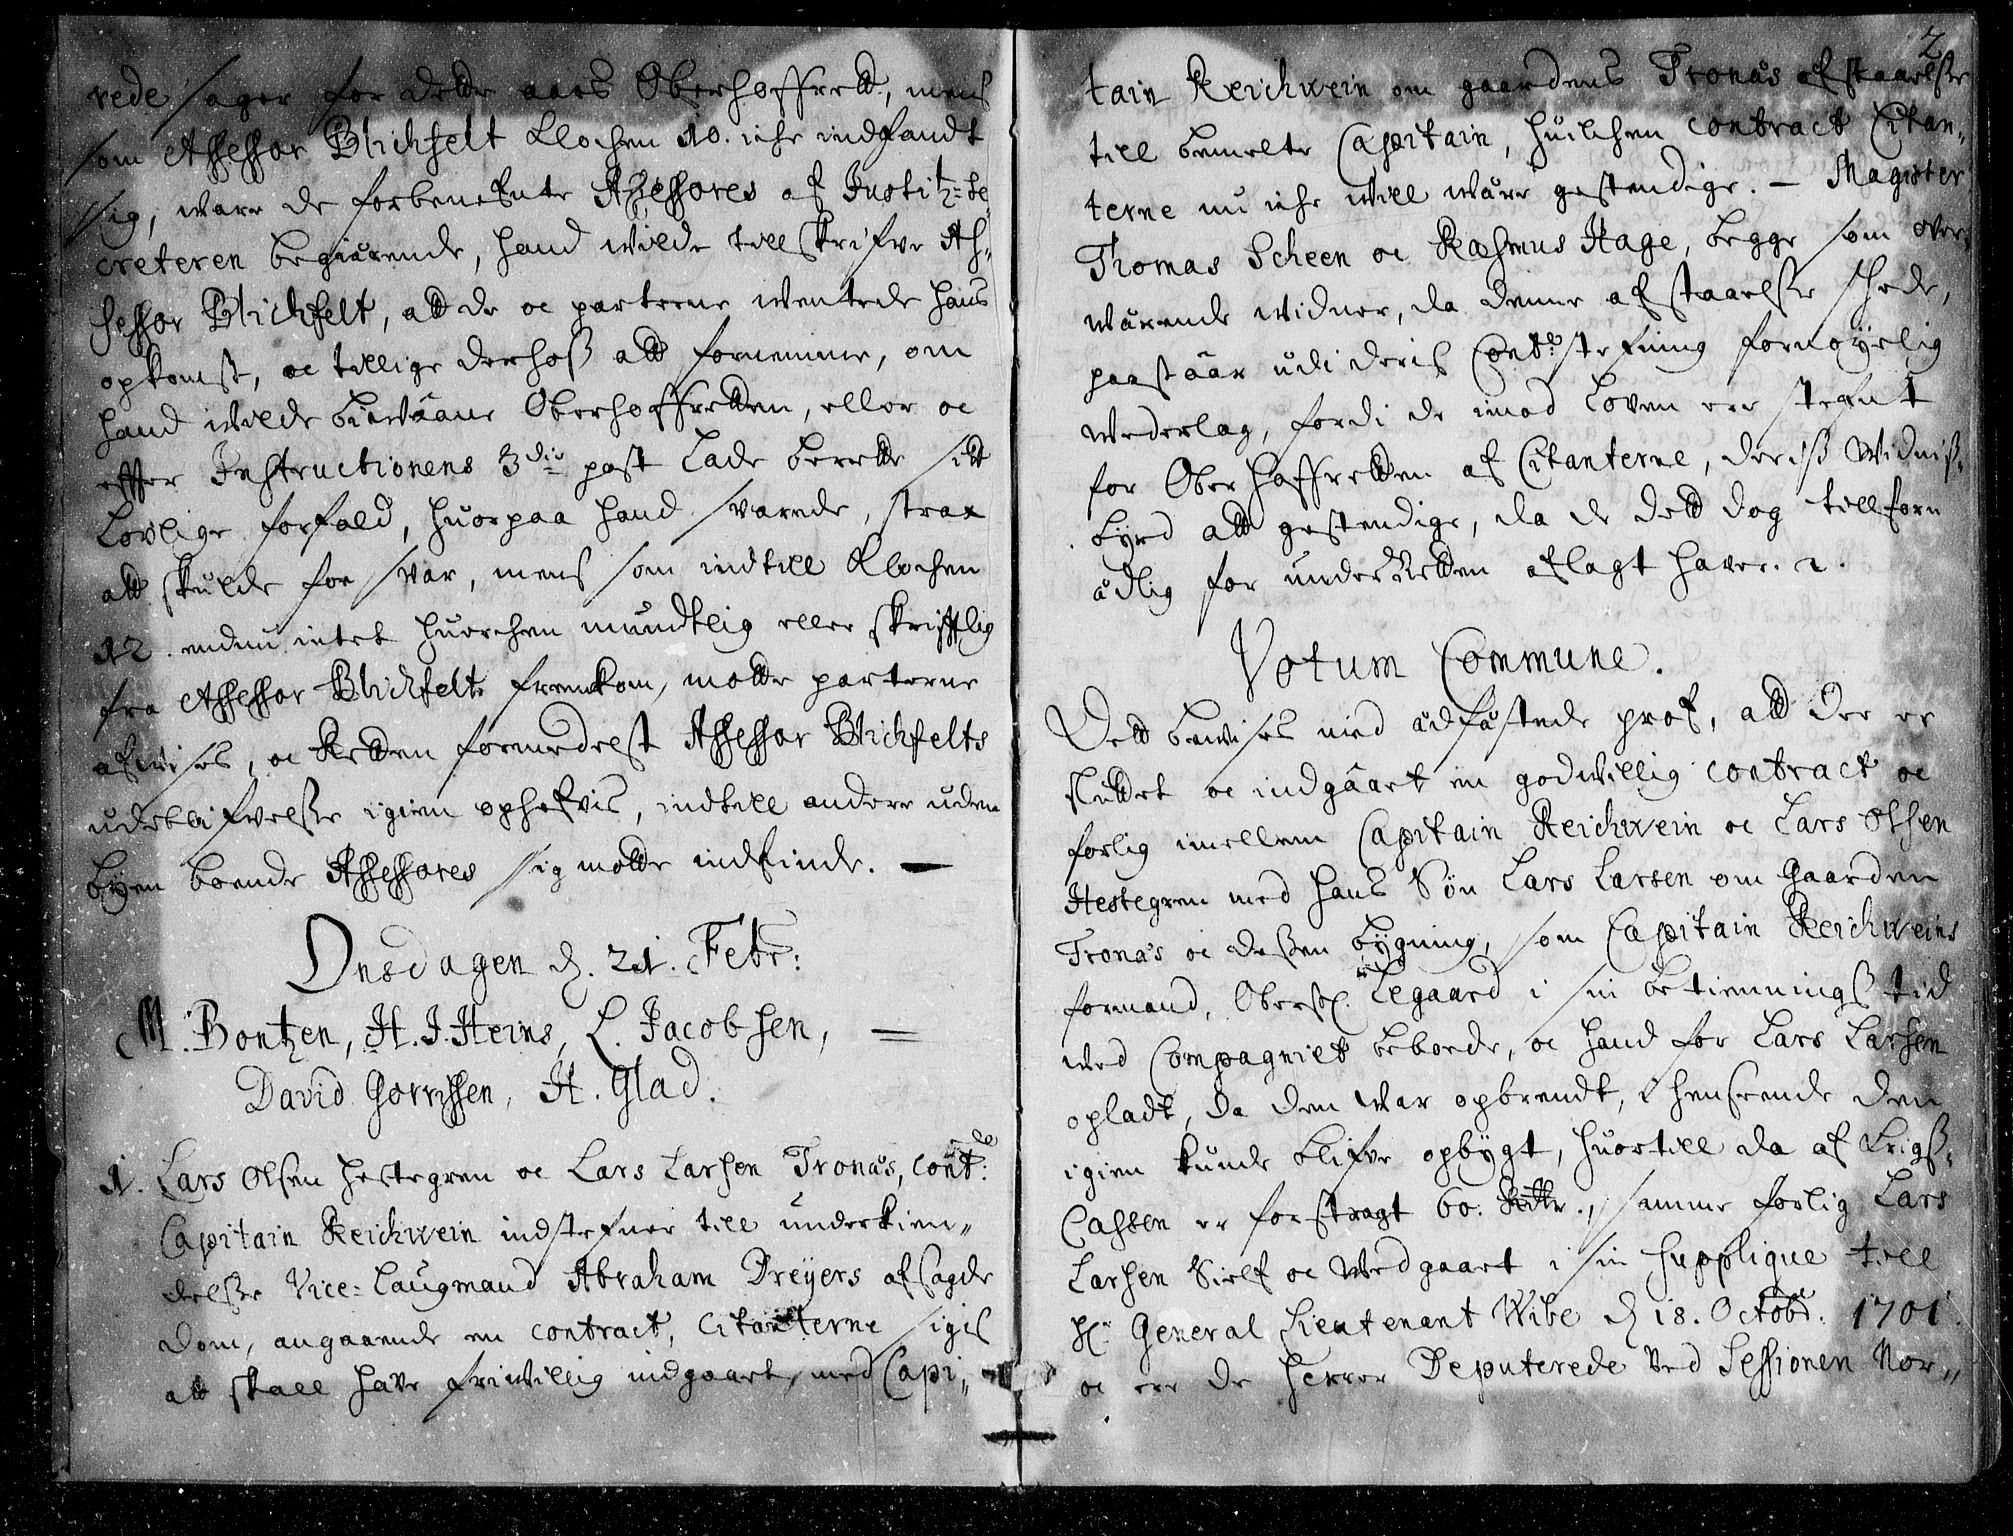 rede sager for dette aars Oberhoffrett, mens
som Assessor Blichfelt Klochen 10. iche indfandt
sig, ware de forbenefnte Assessores af Justitz=Se,
creteren begiærende, hand wilde till skrifve As,
sessor Blichfelt, att de oc parterne wentede hans
opkomst, oc tillige derhoß att fornemme, om
hand wilde biwaane Oberhoffretten, eller oc
effter Instructionens 3die post lade berette sitt
Lovlige forfald, huorpaa hand svarede, strax
att skulde for svar, mens som indtill Klochen
12. endnu intet huorchen mundtlig eller skrifftlig
fra Assessor Blichfelt fremkom, motte parterne
afwises, oc Retten formedelst Assessor Blichfelts
udeblifvelse igien ophefvis, indtill andere uden
byen boende Assessores sig motte indfinde. —
Onsdagen d. 21. Febr:
M. Bontzen, H. J. Heins, L. Jacobsen, =
David Gorrissen, H. Glad.
1. Lars Olsen Hestegren oc Lars Larsen Tronæs, contde:
Capitain Reichwein indstefner till underkien,,
delse Vice=Laugmand Abraham Dreyers afsagde
dom, angaaende en contract, Citanterne siges
att skall have friwillig indgaaet, med Capi,,
2
tain Reichwein om gaardens Tronæs afstaaelse
till bemelte Capitain, huilchen contract Citan,,
terne nu iche will wære gestendige. — Magister
Thomas Scheen oc Rasmus Hage, begge som ower,
wærende widner, da denne afstaaelse skede,
paastaar udi deris Contra stefning fornøyelig
wederlag, fordi de imod Loven er stefnt
for Oberhoffretten af Citanterne, deriß Widniß,
byrd att gestendige, da de dett dog tillforn
ædlig for underretten aflagt haver. 2.
Votum Commune.
Dett bewises med ædfæstede prof, att der er
sluttet oc indgaaet en godwillig contract oc
forlig imellem Capitain Reichwein oc Lars Olsen
Hestegren med hans Søn Lars Larsen om Gaarden
Tronæs oc dessen bygning, som Capitain Reichweins
formand, Oberst. Legaard i sin betiennings tid
wed Compagniet beboede, oc hand for Lars Larsen
opladt, da den war opbrendt, i henseende den
igien kunde blifve opbygt, huortill da af Krigs,
Cassen er forstragt 60. Rdlr., samme forlig Lars
Larsen Sielf oc wedgaaet i sin Supplique till
Hr. General Lieutenant Wibe d. 18. Octobr. 1701.
oc er de Herrer Deputerede ved Sessionen Nor,,